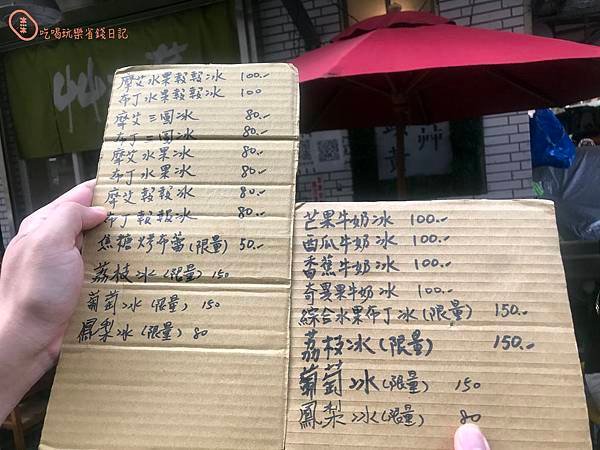 吃喝玩樂省錢日記
摩艾水果穀穀冰 100.-
布丁水果穀穀冰 100
摩艾三圓冰 80.-
布丁三圓冰 80.-
摩艾水果冰 80.-
布丁水果冰 80.-
摩艾穀穀冰 80.-
布丁穀穀冰 80.-
焦糖烤布蕾(限量) 50.-
荔枝冰(限量) 150
葡萄冰(限量) 150
鳳梨冰(限量) 80
芒果牛奶冰 100.-
西瓜牛奶冰 100.-
香蕉牛奶冰 100.-
奇異果牛奶冰 100.-
綜合水果布丁冰(限量) 150.-
荔枝冰(限量) 150.-
葡萄冰(限量) 150
鳳梨冰(限量) 80